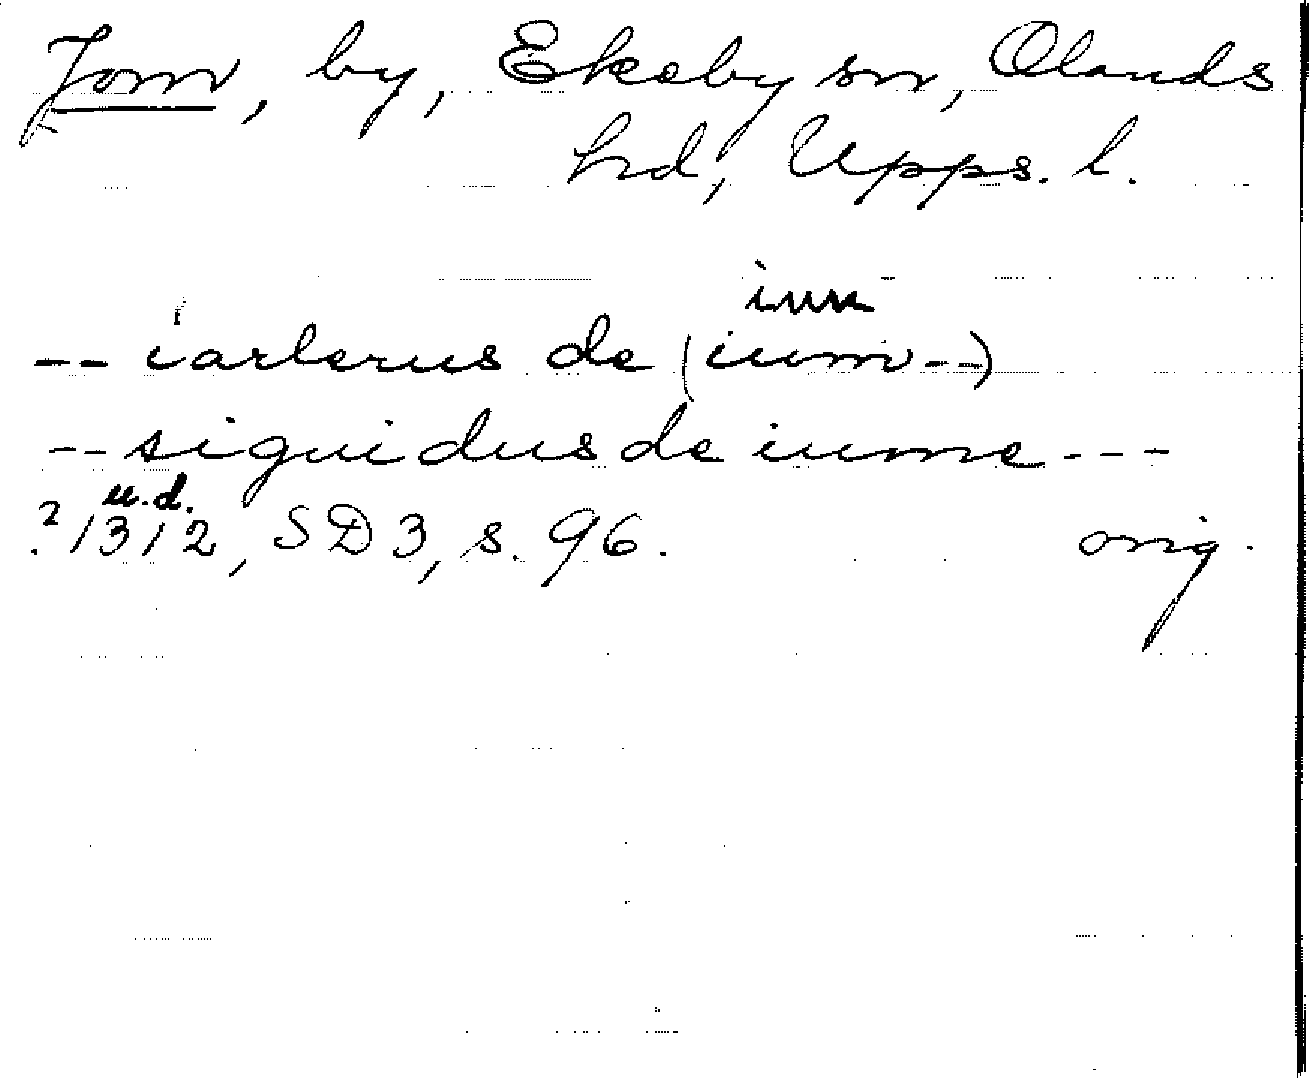 Jom, by, Ekeby sn, Olands
hd, Upps. l.
iun
-- iarlerus de (ium--)
-- siguidus de iume ---
u.d.
? 1312, SD 3, s. 96. orig.